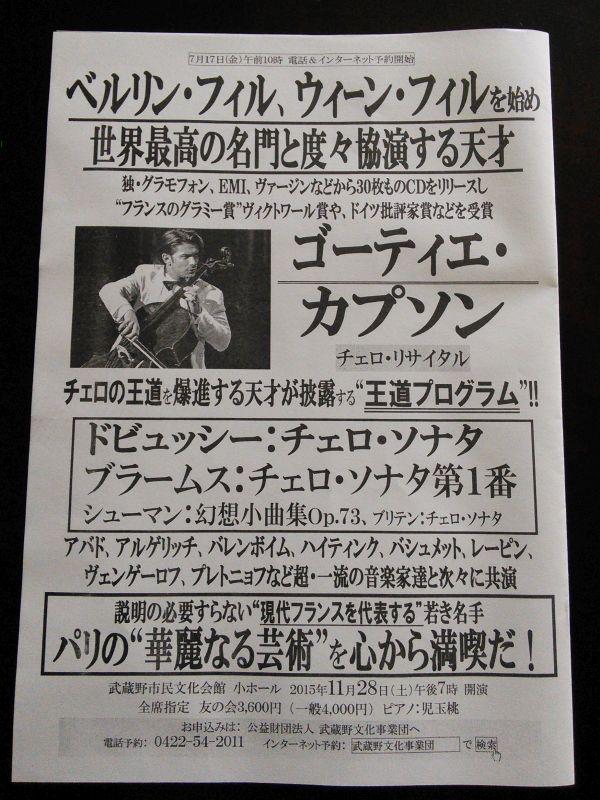 7月17日(金)午前10時 電話&インターネット予約開始
ベルリン・フィル、ウィーン・フィルを始め
世界最高の名門と度々協演する天才
独・グラモフォン、EMI、ヴァージンなどから30枚ものCDをリリースし
“フランスのグラミー賞”ヴィクトワール賞や、ドイツ批評家賞などを受賞
ゴーティエ・
カプソン
チェロ・リサイタル
チェロの王道を爆進する天才が披露する“王道プログラム”!!
ドビュッシー:チェロ・ソナタ
ブラームス:チェロ・ソナタ第1番
シューマン:幻想小曲集Op.73、ブリテン:チェロ・ソナタ
アバド、アルゲリッチ、バレンボイム、ハイティンク、バシュメット、レーピン、
ヴェンゲーロフ、プレトニョフなど超・一流の音楽家達と次々に共演
説明の必要すらない“現代フランスを代表する”若き名手
パリの“華麗なる芸術”を心から満喫だ!
武蔵野市民文化会館 小ホール 2015年11月28日(土)午後7時 開演
全席指定 友の会3,600円(一般4,000円) ピアノ:児玉桃
お申込みは:公益財団法人 武蔵野文化事業団へ
電話予約: 0422-54-2011 インターネット予約: 武蔵野文化事業団 で 検索